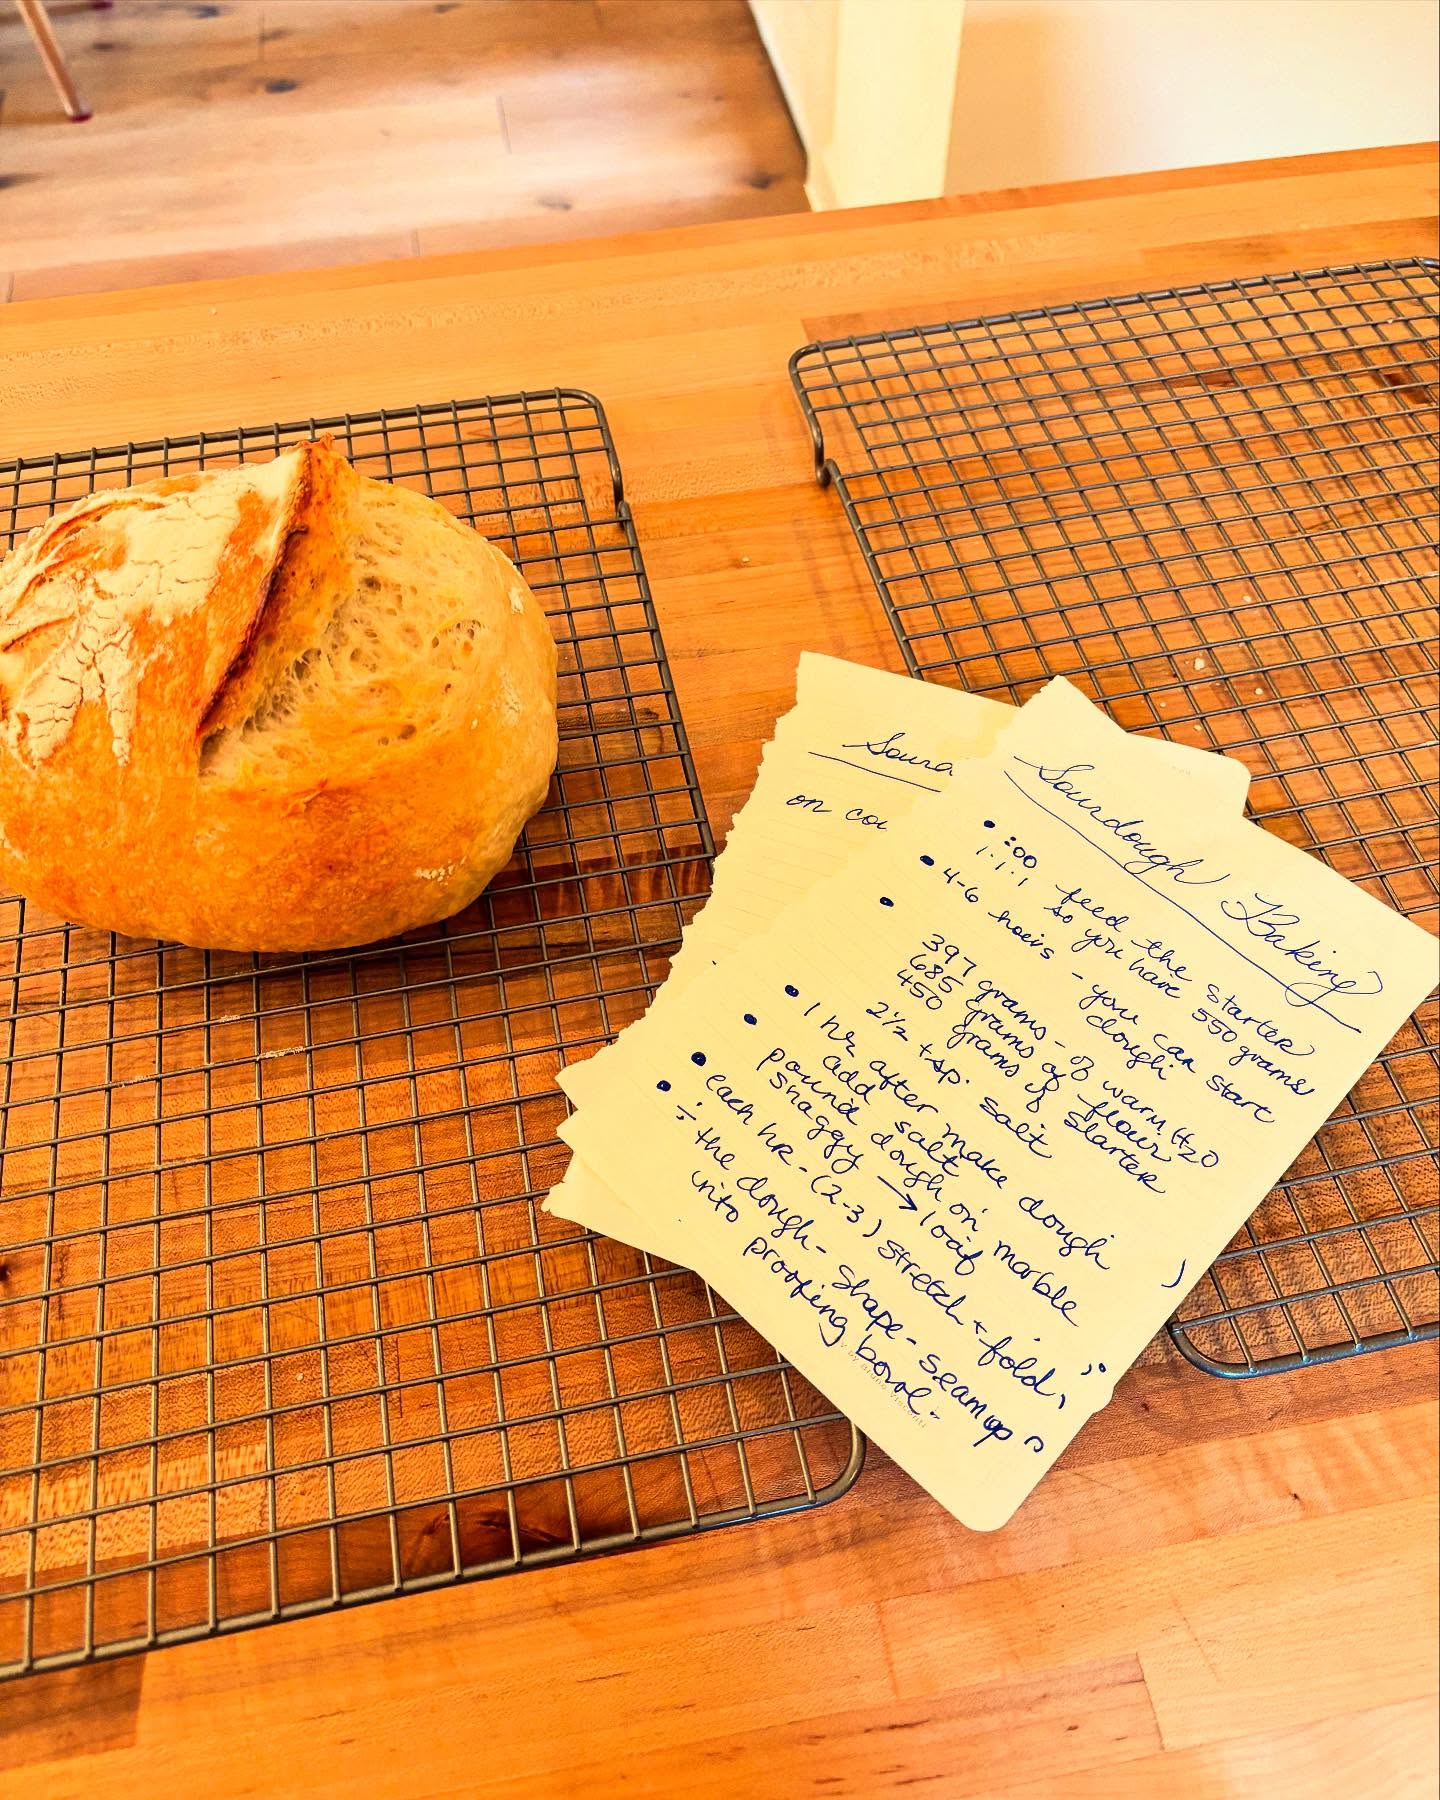 Sourd
on cou
Sourdough Baking
• :00 feed the starter
1:1:1 so you have 550 grams
• 4-6 hours - you can start
dough
• 397 grams - of warm H2O
685 grams of flour
450 grams of starter
2½ tsp. salt
• 1 hr after make dough
add salt
• pound dough on marble
shaggy → loaf
• each hr - (2-3) stretch + fold
• ÷ the dough - shape - seam up
into proofing bowl.